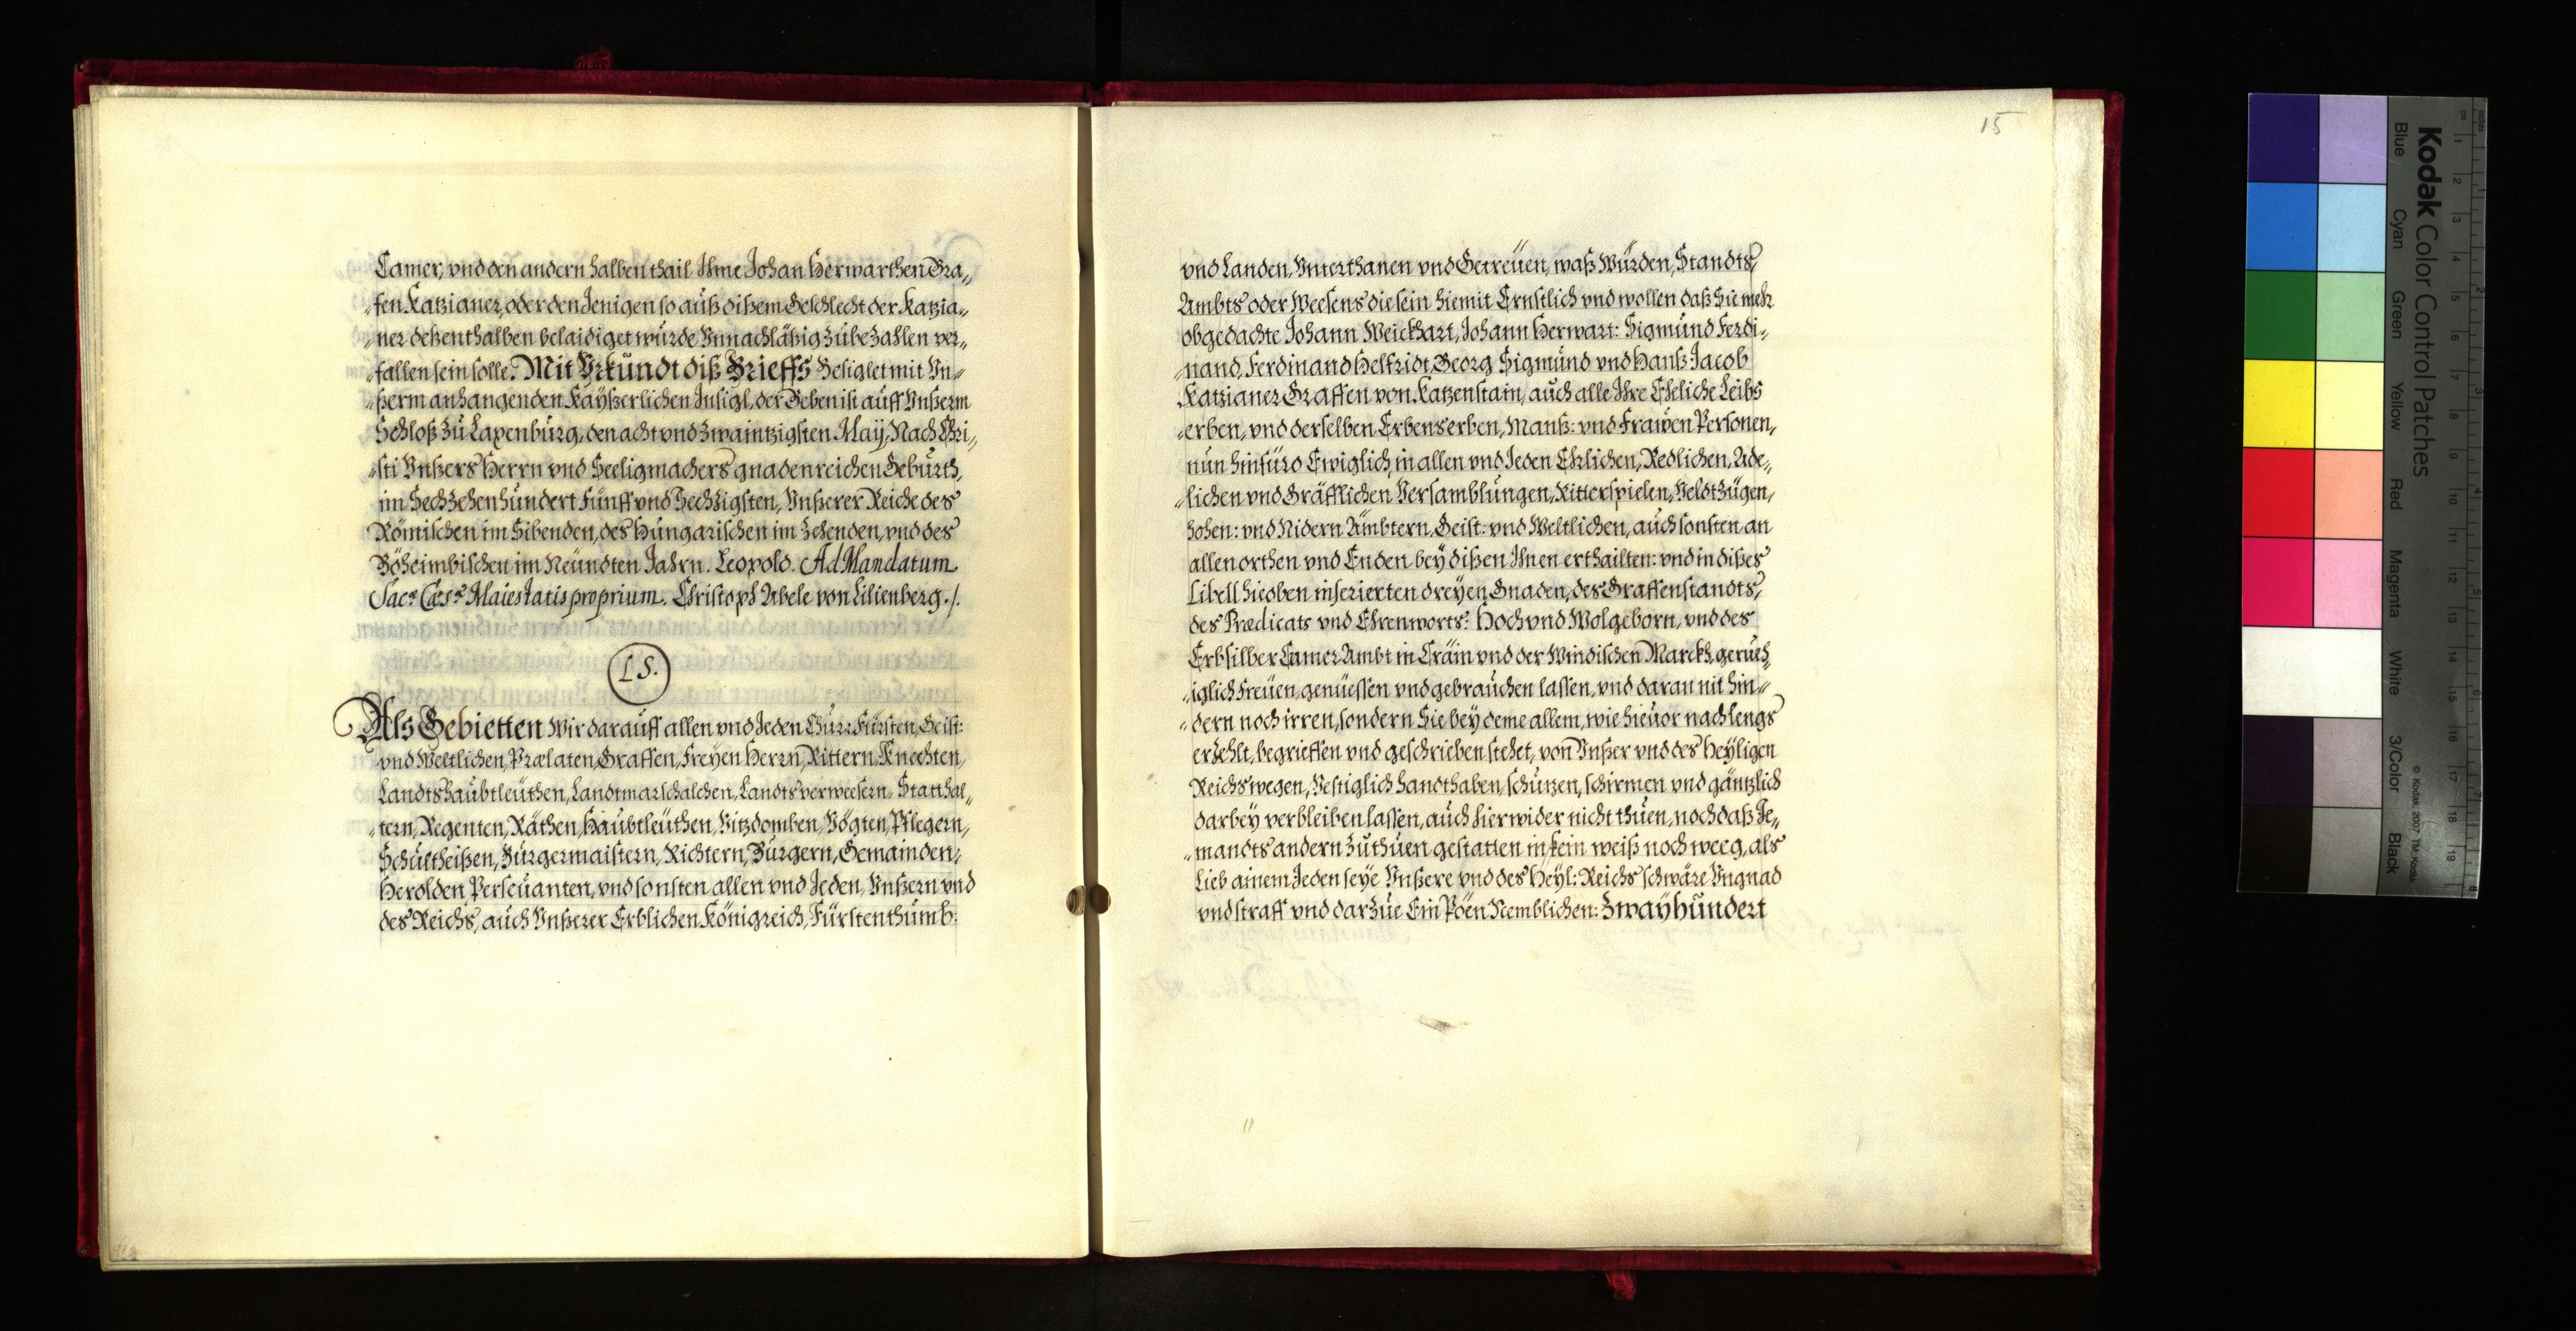 Camer, vnd den andern halben thail Ihme Johan Herwarthen Gra„
„fen Katzianer, oder den Jenigen so auß dißem Geschlecht der Katzia„
„ner deßenthalben belaidiget würde Vnnachläßig zubezahlen ver„
„fallen sein solle. Mit Vrkundt diß Brieffs Besiglet mit Vn„
„ßerm anhangenden Kayßerlichen Insigl, der Geben ist auff Vnßerm
Schloß zu Laxenburg, den acht vnd zwaintzigsten May, Nach Chri„
„sti Vnßers Herrn vnd Seeligmachers gnadenreichen Geburth,
im Sechzehenhundert Fünff vnd Sechzigsten, Vnßerer Reiche des
Römischen im Sibenden, des Hungarischen im Zehenden, vnd des
Böheimbischen im Neundten Jahrn. Leopold. Ad Mandatum
Sacæ Cæsæ Maiestatis proprium. Christoph Abele von Lilienberg ./.
L.S.
Als Gebietten Wir darauff allen vnd Jeden Chur: Fürsten, Geist:
vnd Weltlichen, Prælaten, Graffen, Freyen Herrn, Rittern, Knechten,
Landtshaubtleuthen, Landtmarschalchen, Landtsverweesern, Statthal„
„tern, Regenten, Räthen, Haubtleuthen, Vitzdomben, Vögten, Pflegern,
Schultheißen, Burgermaistern, Richtern, Burgern, Gemainden,
Herolden, Perseuanten, vnd sonsten allen vnd Jeden, Vnßern vnd
des Reichs, auch Vnßerer Erblichen Königreich, Fürstenthumb:
15
vnd Landen, Vnterthanen vnd Getreuen, waß Würden, Standts,
Ambts oder Weesens die sein hiemit Ernstlich vnd wollen daß Sie mehr
obgedachte Johann Weickhart, Johann Herwart: Sigmund Ferdi„
„nand, Ferdinand Helfridt, Georg Sigmund vnd Hanß Jacob
Katzianer Graffen von Katzenstain, auch alle Ihre Eheliche Leibs
„erben, vnd derselben Erbens erben, Manß: vnd Frawen Personen,
nun hinfüro Ewiglich, in allen vnd Jeden Ehrlichen, Redlichen, Ade„
„lichen vnd Gräfflichen Versamblungen, Ritterspielen, Veldtzügen,
hohen: vnd Nidern Ämbtern, Geist: vnd Weltlichen, auch sonsten an
allen orthen vnd Enden bey dißen Ihnen erthailten: vnd in dißes
Libell hieoben inserierten dreyen Gnaden, des Graffenstandts,
des Prædicats vnd Ehrenworts: Hoch vnd Wolgeborn, vnd des
Erbsilber Camer Ambt in Cräin vnd der Windischen Marckh, gerueh„
„iglich freuen, genüessen vnd gebrauchen lassen, vnd daran nit hin„
„dern noch irren, sondern Sie bey deme allem, wie hieuor nachlengs
erzehlt, begrieffen vnd geschrieben stehet, von Vnßer vnd des Heyligen
Reichs wegen, Vestiglich handthaben, schützen, schirmen vnd gäntzlich
darbey verbleiben lassen, auch hierwider nicht thuen, noch daß Je„
„mandts andern zuthuen gestatten in kein weiß noch weeg, als
Lieb ainem Jeden seye Vnßere vnd des Heyl: Reichs schwäre Vngnad
vnd straff vnd darzue Ein Pöen Nemblichen: Zwayhundert
Kodak Color Control Patches
Blue Cyan Green Yellow Red Magenta White 3/Color Black
© Kodak, 2007 TM: Kodak